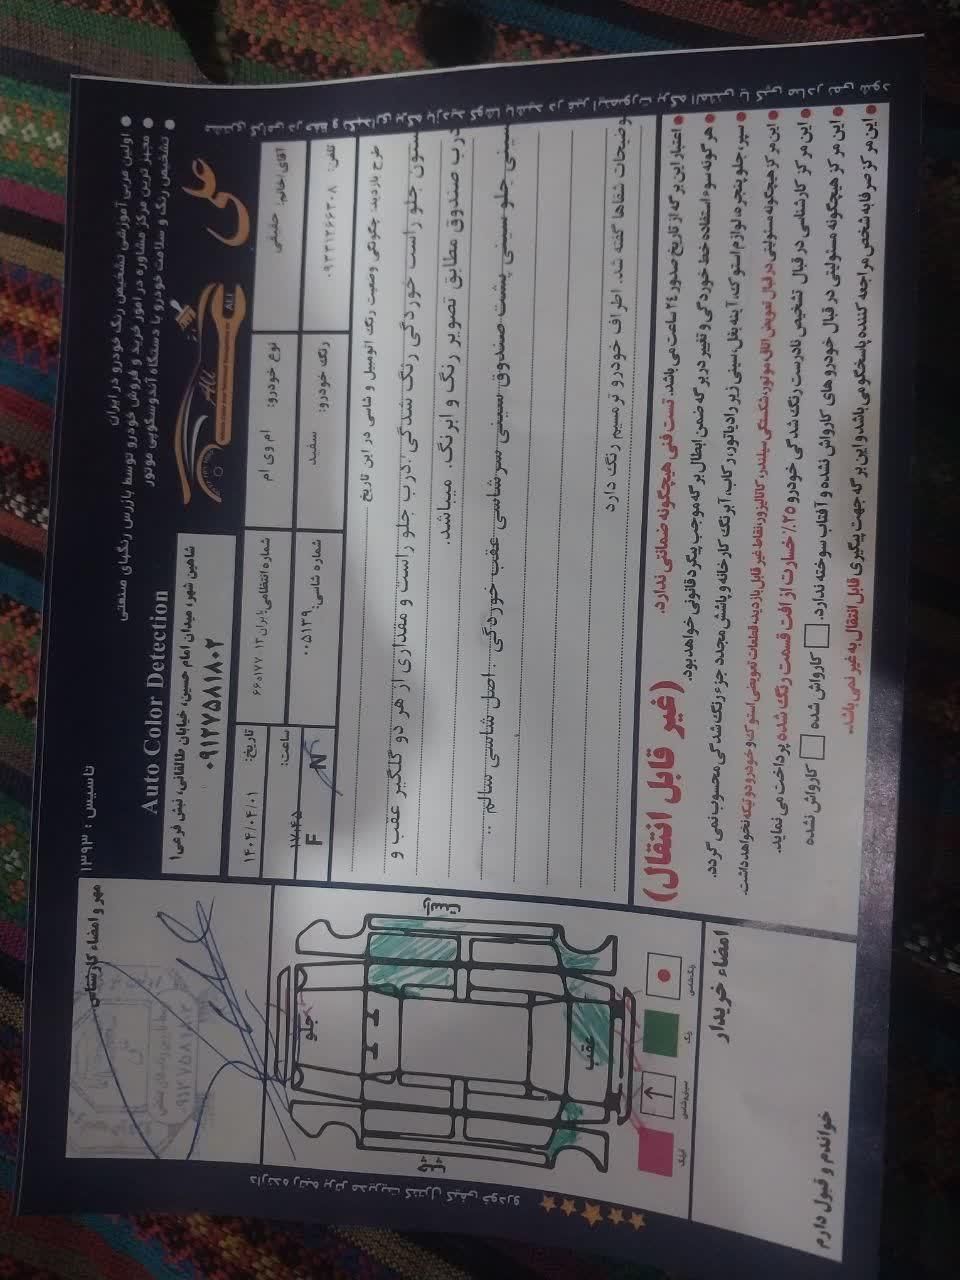 تاسیس : ۱۳۹۳
Auto Color Detection
علی
Ali
ALI
تشخیص رنگ و سلامت خودرو با دستگاه آندوسکوپی موتور
مجهز ترین مرکز مشاوره در امور خرید و فروش خودرو توسط بازرس رنگهای صنعتی
اولین مربی آموزشی تشخیص رنگ خودرو در ایران
شاهین شهر، میدان امام حسین، خیابان طالقانی، نبش فرعی ۱
۰۹۱۲۷۵۸۱۸۰۲
آقای/خانم:
نوع خودرو: ام وی ام
شماره انتظامی: ایران ۱۳
تاریخ: ۱۴۰۴/۰۴/۰۱
تلفن: ۰۹۳۱۲۶۶۲۰۸
رنگ خودرو: سفید
شماره شاسی: ۰۰۵۱۳۹
ساعت: ۱۷:۴۵
F N
شرح بازدید: چگونگی وضعیت رنگ اتومبیل و شاسی در این تاریخ
ستون جلو راست خوردگی رنگ شدگی . درب جلو راست و مقداری از هر دو گلگیر عقب و
درب صندوق مطابق تصویر رنگ و ابرنگ. میباشد.
سینی جلو سینی پشت صندوق سینی سر شاسی عقب خوردگی . اصل شاسی سالم ..
توضیحات شفاها گفته شد. اطراف خودرو ترمیم رنگ دارد
اعتبار این برگه از تاریخ صدور ۲۴ ساعت می باشد. تست فنی هیچگونه ضمانتی ندارد.
(غیر قابل انتقال)
هرگونه سوء استفاده خط خوردگی و تغییر در برگه ضمن ابطال برگه موجب پیگرد قانونی خواهد بود.
سپر جلو، پنجره، لوازم استوک، آینه بغل، سینی زیر رادیاتور، رکاب، آبرنگ کارخانه و پاشش مجدد جزء رنگ شدگی محسوب نمی گردد.
این مرکز هیچگونه مسئولیتی در قبال تعویض اتاق، موتور، شکستگی سیلندر، کاتالیزور، نقاط غیر قابل بازدید، قطعات تعویضی استوک و خودرو دو تیکه نخواهد داشت.
این مرکز کارشناسی در قبال تشخیص نادرست رنگ شدگی خودرو ۲۵٪ خسارت از افت قسمت رنگ شده پرداخت می نماید.
این مرکز هیچگونه مسئولیتی در قبال خودروهای کارواش نشده و آفتاب سوخته ندارد. کارواش شده کارواش نشده
این مرکز صرفا به شخص مراجعه کننده پاسخگو می باشد و این برگه جهت پیگیری قابل انتقال به غیر نمی باشد.
مهر و امضاء کارشناس
جلو
عقب
راست
چپ
رنگ
آبرنگ
امضاء خریدار
خواندم و قبول دارم
دارنده رتبه برتر مدیریت کنترل کیفی خودرو